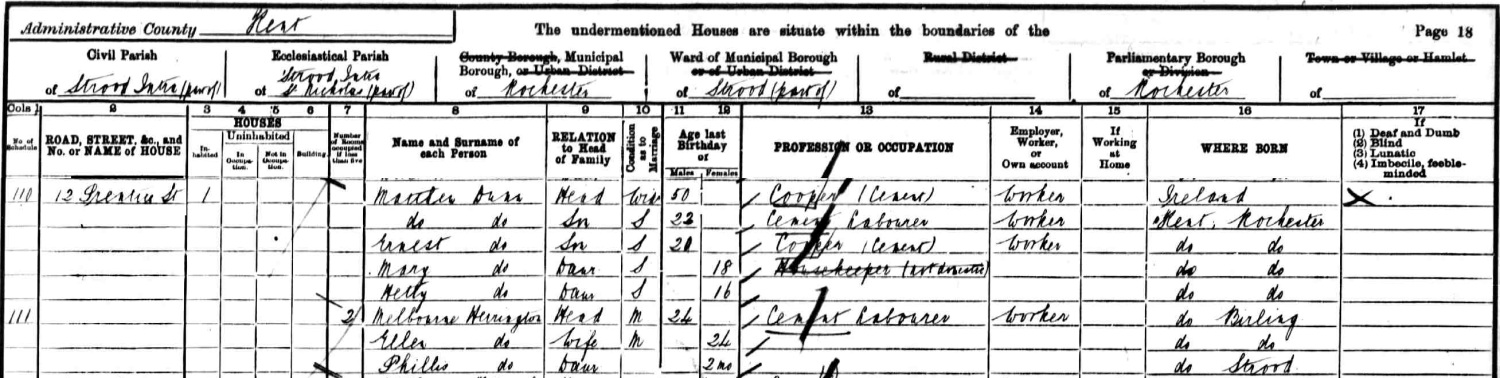 Administrative County Kent The undermentioned Houses are situate within the boundaries of the Page 18
Civil Parish Ecclesiastical Parish County Borough, Municipal Borough, or Urban District Ward of Municipal Borough or of Urban District Rural District Parliamentary Borough or Division Town or Village or Hamlet
of Strood Intra (part of) of Strood Intra St Nicholas (part of) of Rochester of Strood (part of) of of Rochester of
Cols 1 2 3 4 5 6 7 8 9 10 11 12 13 14 15 16 17
No. of Schedule ROAD, STREET, &c., and No. or NAME of HOUSE HOUSES Inhabited Uninhabited In Occupation. Not in Occupation. Building Number of Rooms occupied if less than five Name and Surname of each Person RELATION to Head of Family Condition as to Marriage Age last Birthday of Males Females PROFESSION OR OCCUPATION Employer, Worker, or Own account If Working at Home WHERE BORN If (1) Deaf and Dumb (2) Blind (3) Lunatic (4) Imbecile, feeble-minded
110 12 St 1 Dunn Head Widr 50 Cooper (Cement) Worker Ireland X
do do Son S 22 Cement Labourer Worker Kent, Rochester
Ernest do Son S 20 Cooper (Cement) Worker do do
Mary do Daur S 18 Housekeeper (not domestic) do do
Hetty do Daur S 16 do do
111 2 Melbourne Herrington Head M 24 Cement Labourer Worker do Birling
Ellen do Wife M 24 do do
Phillis do Daur 2 mo do Strood